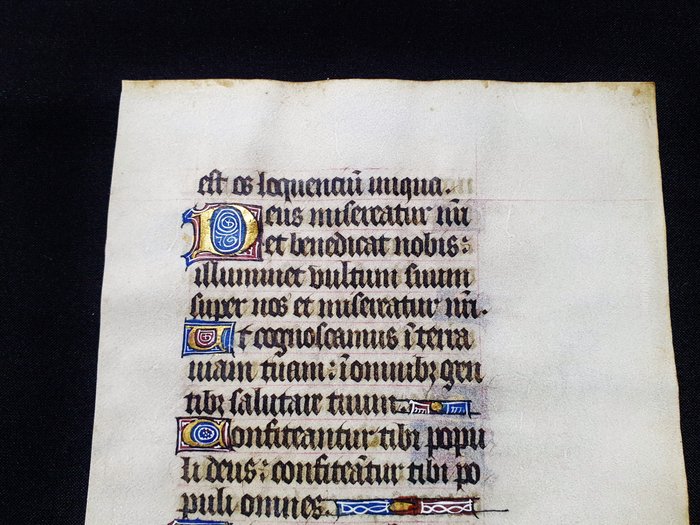 est os loquentiū iniqua.
Deus misereatur nr̄i
et benedicat nobis:
illuminet vultum suum
super nos et misereatur nr̄i.
Ut cognoscamus ī terra
uiam tuam: ī omnibꝫ gen
tibꝫ salutare tuum
Confiteantur tibi popu
li deus: confiteātur tibi po
puli omnes.